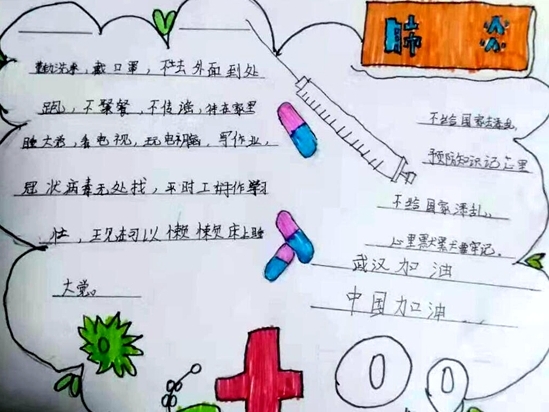 肺炎
勤洗手，戴口罩，不去外面到处
跑，不聚餐，不传谣，待在家里
睡大觉，看电视，玩电脑，写作业，
冠状病毒无处找，平时工作学习
忙，现可以懒懒床上睡
大觉。
不给国家添乱
预防知识记心里
不给国家添乱，
心里默默要牢记。
武汉加油
中国加油